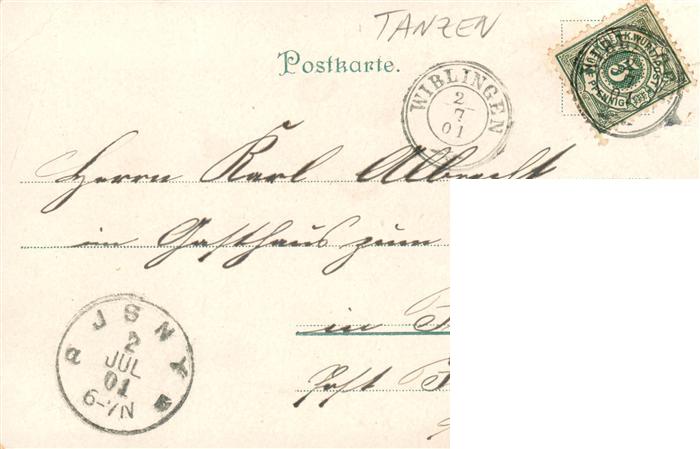 TANZEN
Postkarte.
WIBLINGEN
2
7
01
5
Herrn Karl Albrecht
im Gasthaus zum
in
Post
JSNY
2
JUL
01
6-7N